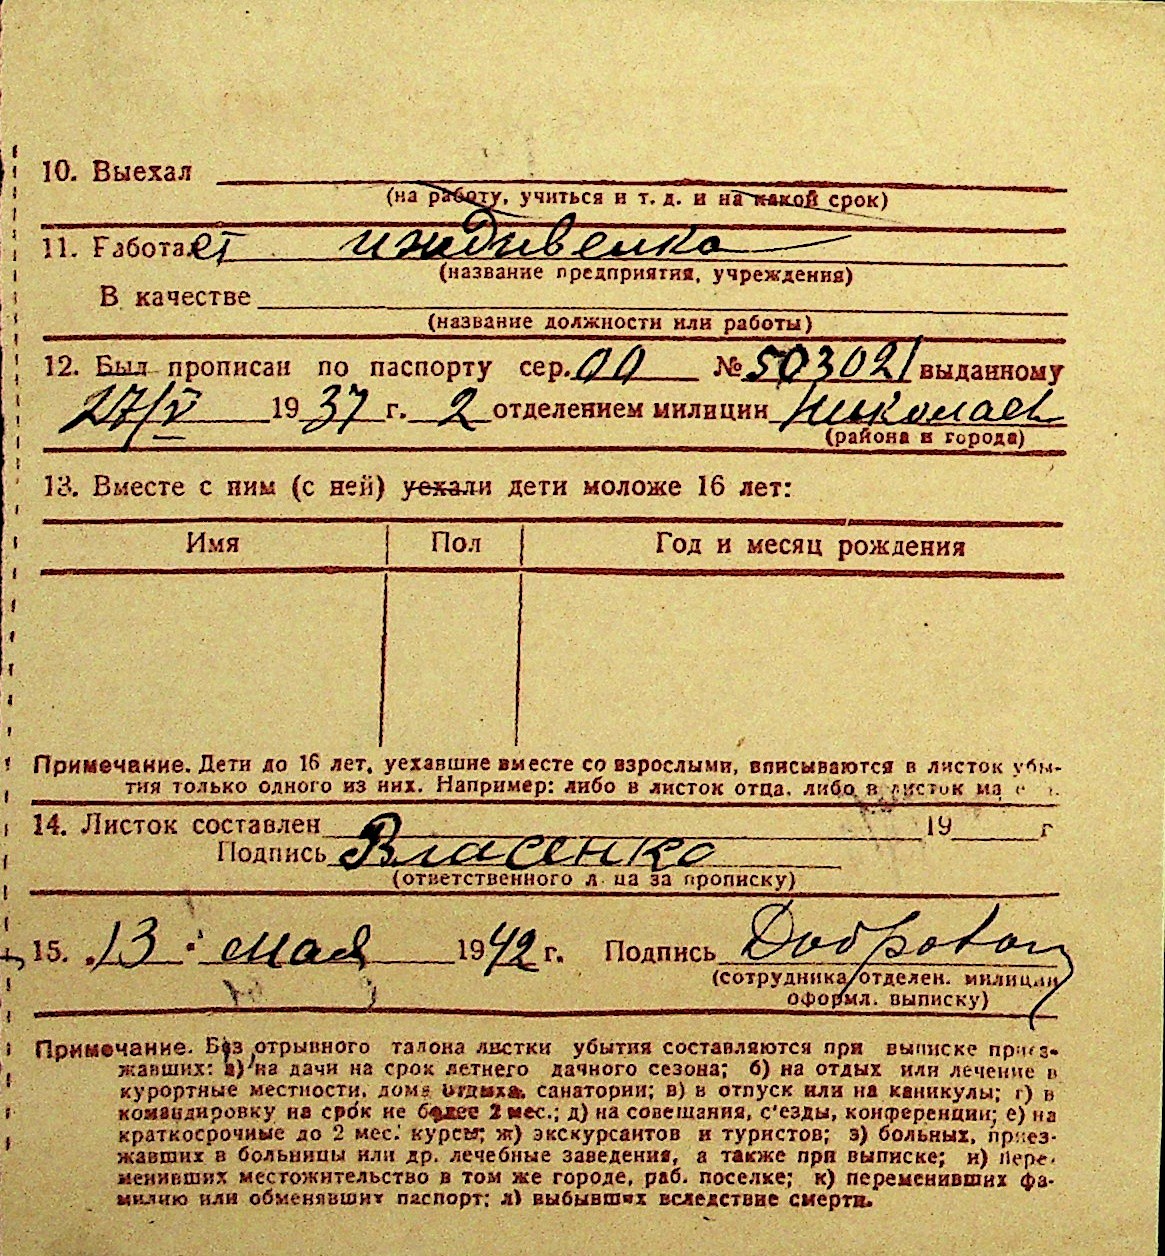 10. Выехал
(на работу, учиться и т. д. и на какой срок)
11. Работает иждивенка
(название предприятия, учреждения)
В качестве
(название должности или работы)
12. Был прописан по паспорту сер. 00 № 503021 выданному
27/V 1937 г. 2 отделением милиции Николаев
(района и города)
13. Вместе с ним (с ней) уехали дети моложе 16 лет:
Имя Пол Год и месяц рождения
Примечание. Дети до 16 лет, уехавшие вместе со взрослыми, вписываются в листок убы-
тия только одного из них. Например: либо в листок отца, либо в листок
14. Листок составлен 19 г
Подпись Власенко
(ответственного лица за прописку)
15. 13 мая 1942 г. Подпись
(сотрудника отделен. милиции
оформл. выписку)
Примечание. Без отрывного талона листки убытия составляются при выписке приез-
жавших: а) на дачи на срок летнего дачного сезона; б) на отдых или лечение в
курортные местности, дома отдыха, санатории; в) в отпуск или на каникулы; г) в
командировку на срок не более 2 мес.; д) на совещания, с'езды, конференции; е) на
краткосрочные до 2 мес. курсы; ж) экскурсантов и туристов; з) больных, приез-
жавших в больницы или др. лечебные заведения, а также при выписке; и) пере-
менивших местожительство в том же городе, раб. поселке; к) переменивших фа-
милию или обменявших паспорт; л) выбывших вследствие смерти.